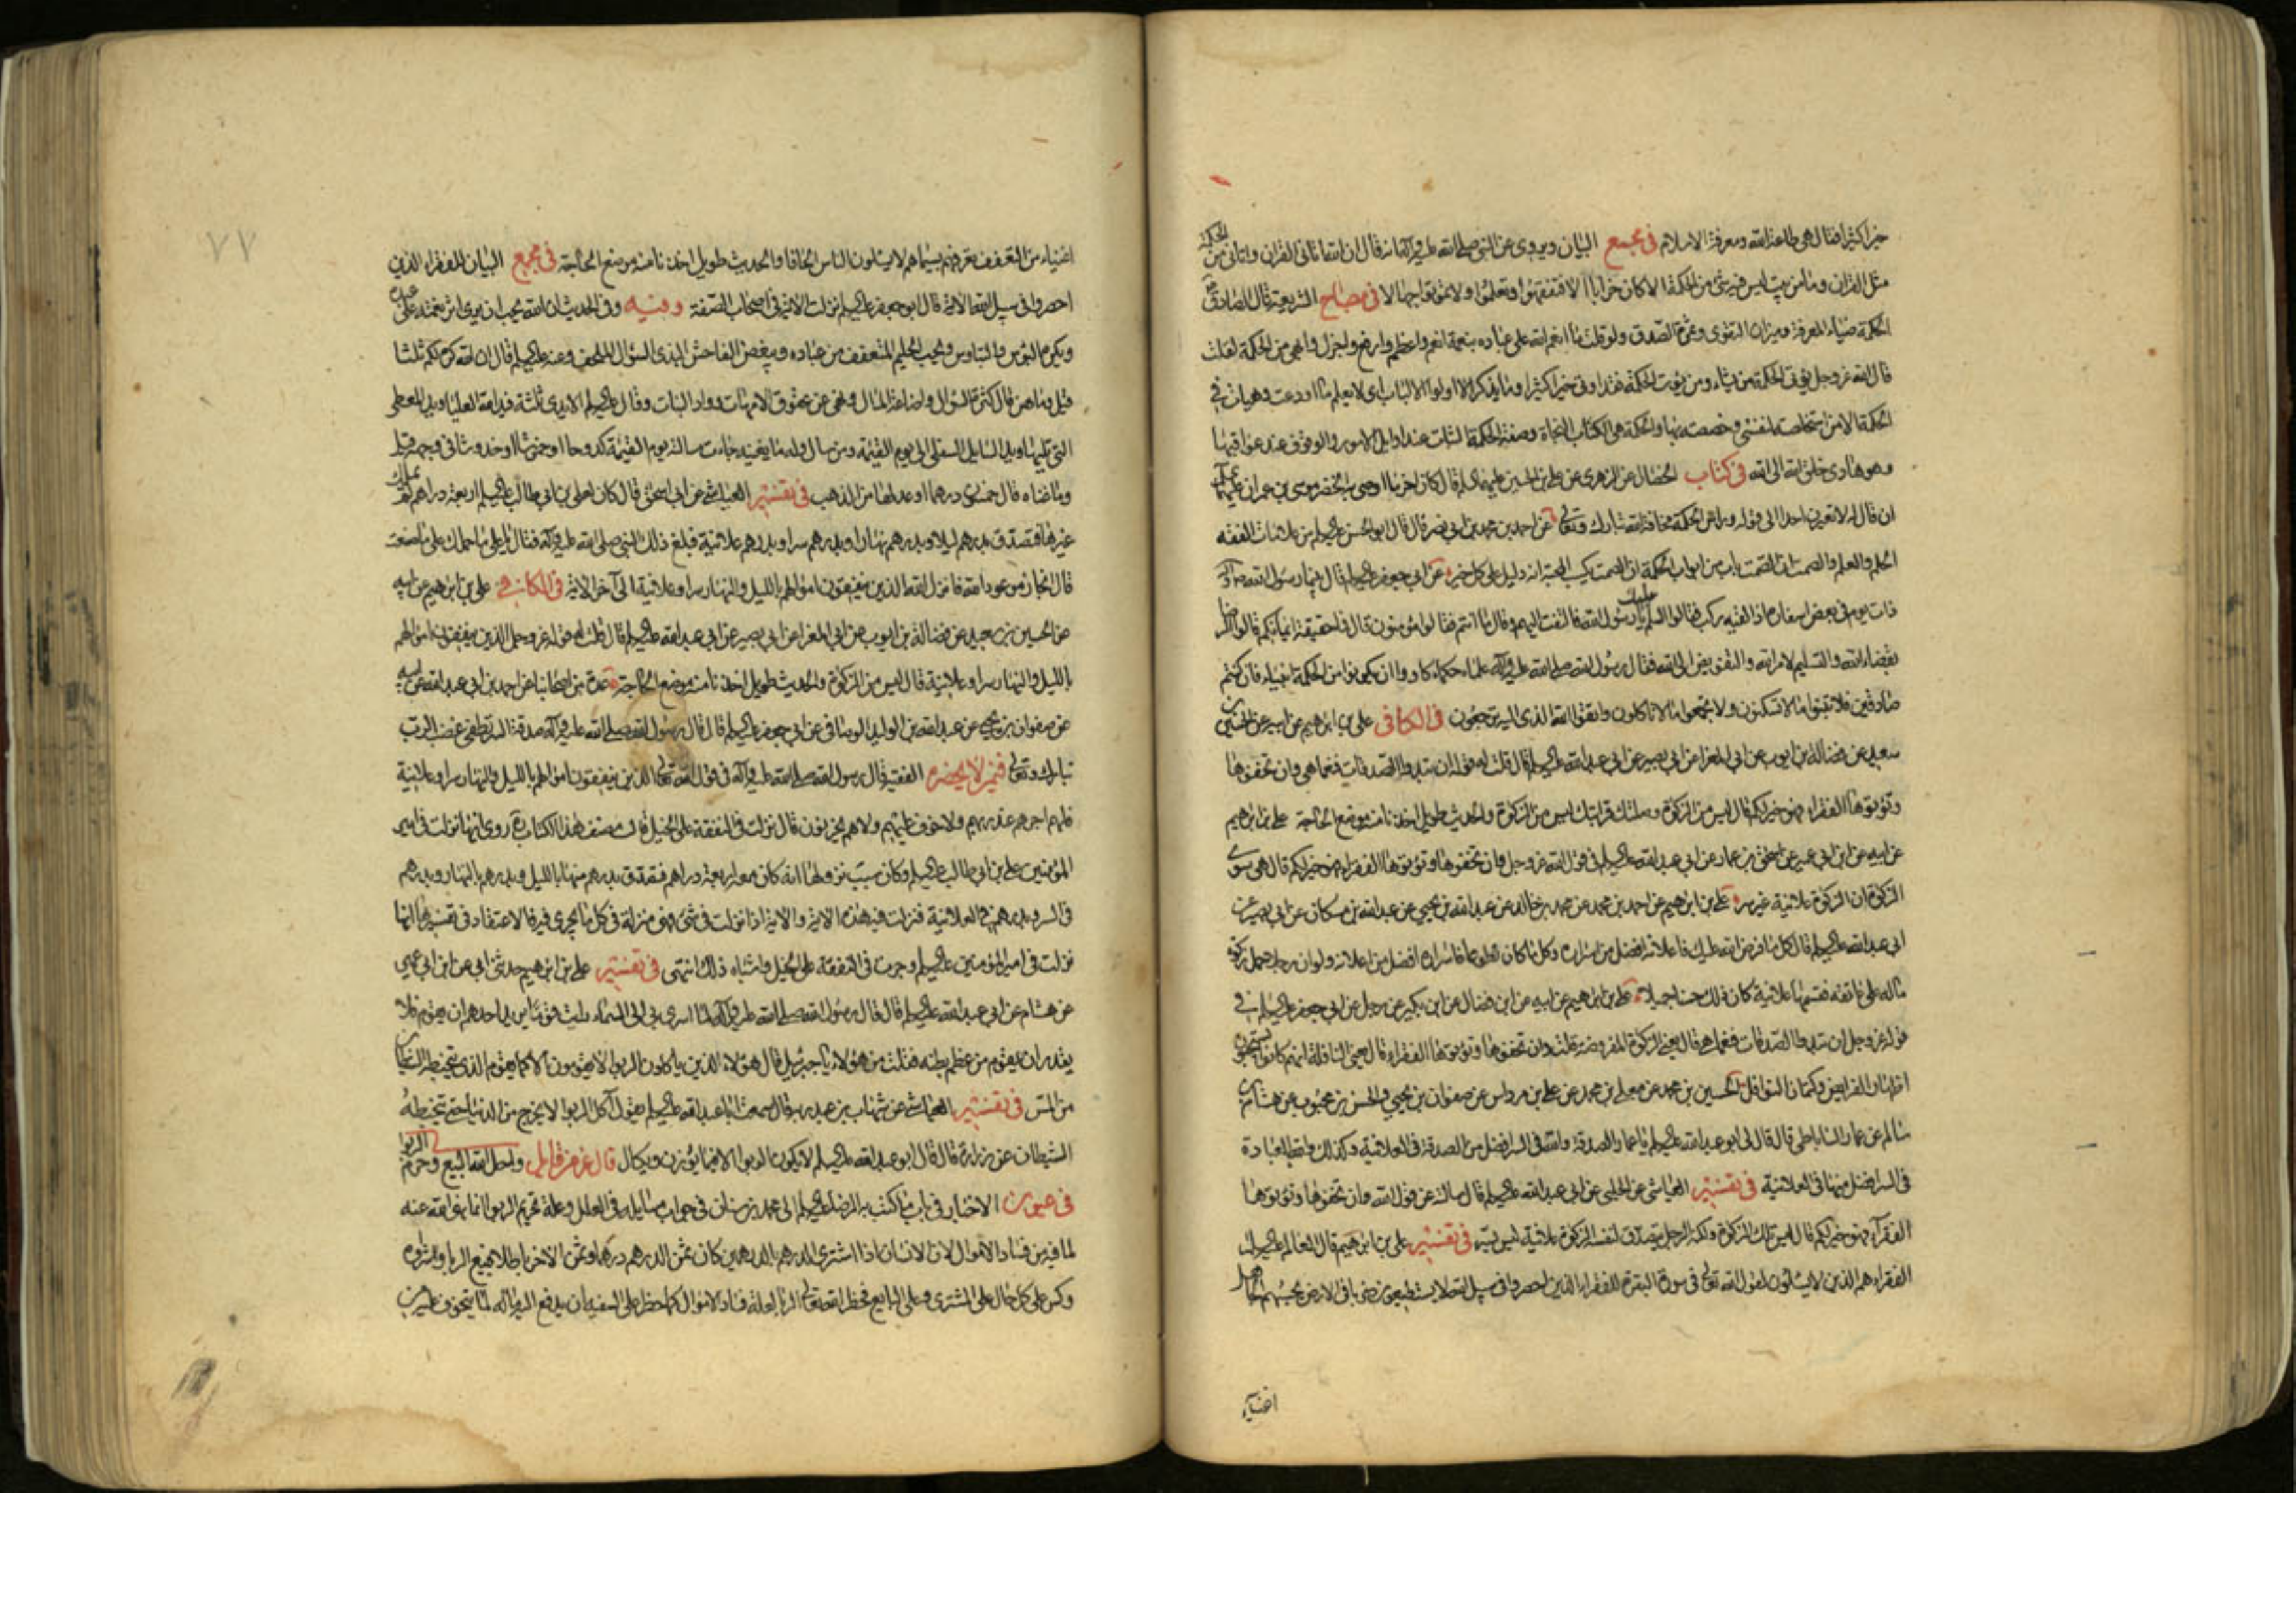 خيرا كثيرا فقال هى طاعة الله ومعرفة الاسلام فى مجمع البيان ويروى عن النبى صلى الله عليه وآله انه قال ان الله اتانى القران واتانى من الحكمة
مثل القران وما من بيت ليس فيه شئ من الحكمة الا كان خرابا الا فتفقهوا وتعلموا ولا تموتوا جهالا فى مصباح الشريعة قال الصادق ع
الحكمة ضياء المعرفة وميزان التقوى وثمرة الصدق ولو قلت ما انعم الله على عباده بنعمة انعم واعظم وارفع واجزل وابهى من الحكمة لقلت
قال الله عز وجل يؤتى الحكمة من يشاء ومن يؤت الحكمة فقد اوتى خيرا كثيرا وما يذكر الا اولوا الالباب اى لا يعلم ما اودعت وهيات فى
الحكمة الا من استخلصته لنفسى وخصصته بها والحكمة هى الكتاب النجاة وصفة الحكمة الثبات عند اوايل الامور والوقوف عند عواقبها
وهو هادى خلق الله الى الله فى كتاب الخصال عن الزهرى عن على بن الحسين عليهما السلم قال كان اخر ما اوصى به الخضر موسى بن عمران عليهما السلم
ان قال له لا تعيرن احدا الى قوله وراس الحكمة مخافة الله تبارك وتعالى عن احمد بن محمد بن ابى نصر قال قال ابو الحسن عليه السلم من علامات الفقه
الحلم والعلم والصمت ان الصمت باب من ابواب الحكمة ان الصمت يكسب المحبة انه دليل على كل خير عن ابى جعفر عليه السلم قال بينا رسول الله صلى الله عليه وآله
ذات يوم فى بعض اسفاره اذ لقيه ركب فقالوا السلم عليك يا رسول الله فالتفت اليهم وقال ما انتم فقالوا مؤمنون قال فما حقيقة ايمانكم قالوا الرضا
بقضاء الله والتسليم لامر الله والتفويض الى الله فقال رسول الله صلى الله عليه وآله علماء حكماء كادوا ان يكونوا من الحكمة انبياء فان كنتم
صادقين فلا تبنوا ما لا تسكنون ولا تجمعوا ما لا تاكلون واتقوا الله الذى اليه ترجعون فى الكافى على بن ابرهيم عن ابيه عن الحسين بن
سعيد عن فضالة بن ايوب عن ابى المغرا عن ابى بصير عن ابى عبد الله عليه السلم قال قلت له قوله ان تبدوا الصدقات فنعما هى وان تخفوها
وتؤتوها الفقراء فهو خير لكم قال ليس من الزكوة وصلتك قرابتك ليس من الزكوة والحديث طويل اخذنا منه موضع الحاجة على بن ابرهيم
عن ابيه عن ابن ابى عمير عن اسحق بن عمار عن ابى عبد الله عليه السلم فى قول الله عز وجل وان تخفوها وتؤتوها الفقراء فهو خير لكم قال هى سوى
الزكوة ان الزكوة علانية غير سر على بن ابرهيم عن احمد بن محمد عن محمد بن خالد عن عبد الله بن يحيى عن عبد الله بن مسكان عن ابى بصير عن
ابى عبد الله عليه السلم قال كل ما فرض الله عليك فاعلانه افضل من اسراره وكل ما كان تطوعا فاسراره افضل من اعلانه ولو ان رجلا حمل زكوة
ماله على عاتقه فقسمها علانية كان ذلك حسنا جميلا على بن ابرهيم عن ابيه عن ابن فضال عن ابن بكير عن رجل عن ابى جعفر عليه السلم فى
قوله عز وجل ان تبدوا الصدقات فنعما هى قال يعنى الزكوة المفروضة قلت وان تخفوها وتؤتوها الفقراء قال يعنى النافلة انهم كانوا يستحبون
اظهار الفرايض وكتمان النوافل الحسين بن محمد عن معلى بن محمد عن على بن مرداس عن صفوان بن يحيى والحسن بن محبوب عن هشام بن
سالم عن عمار الساباطى قال قال لى ابو عبد الله عليه السلم يا عمار الصدقة والله فى السر افضل من الصدقة فى العلانية وكذلك والله العبادة
فى السر افضل منها فى العلانية فى تفسير العياشى عن الحلبى عن ابى عبد الله عليه السلم قال سالته عن قول الله وان تخفوها وتؤتوها
الفقراء فهو خير لكم قال ليس تلك الزكوة ولكنه الرجل يتصدق لنفسه الزكوة علانية ليس بسر فى تفسير على بن ابرهيم قال العالم عليه السلم
الفقراء هم الذين لا يسئلون لقول الله تعالى فى سورة البقرة للفقراء الذين احصروا فى سبيل الله لا يستطيعون ضربا فى الارض يحسبهم الجاهل
اغنياء
٧٧
اغنياء من التعفف تعرفهم بسيماهم لا يسئلون الناس الحافا والحديث طويل اخذنا منه موضع الحاجة فى مجمع البيان للفقراء الذين
احصروا فى سبيل الله الاية قال ابو جعفر عليه السلم نزلت الاية فى اصحاب الصفة وفيه وفى الحديث ان الله يحب ان يرى اثر نعمته على عبده
ويكره البؤس والتباوس ويحب الحليم المتعفف من عباده ويبغض الفاحش البذى السؤال الملحف وعنه عليه السلم قال ان الله كره لكم ثلثا
قيل وما هن قال كثرة السؤال واضاعة المال ونهى عن عقوق الامهات ووأد البنات وقال عليه السلم الايدى ثلثة فيد الله العليا ويد المعطى
التى تليها ويد السايل السفلى الى يوم القيمة ومن سال وله ما يغنيه جاءت مسالته يوم القيمة كدوحا او خموشا او خدوشا فى وجهه قيل
وما غناه قال خمسون درهما او عدلها من الذهب فى تفسير العياشى عن ابى اسحق قال كان لعلى بن ابى طالب عليه السلم اربعة دراهم لم يملك
غيرها فتصدق بدرهم ليلا وبدرهم نهارا وبدرهم سرا وبدرهم علانية فبلغ ذلك النبى صلى الله عليه وآله فقال يا على ما حملك على ما صنعت
قال انجاز موعود الله فانزل الله الذين ينفقون اموالهم بالليل والنهار سرا وعلانية الى آخر الاية فى الكافى على بن ابرهيم عن ابيه
عن الحسين بن سعيد عن فضالة بن ايوب عن ابى المغرا عن ابى بصير عن ابى عبد الله عليه السلم قال قلت له قوله عز وجل الذين ينفقون اموالهم
بالليل والنهار سرا وعلانية قال ليس من الزكوة والحديث طويل اخذنا منه موضع الحاجة عدة من اصحابنا عن احمد بن ابى عبد الله عن ابيه
عن صفوان بن يحيى عن عبد الله بن الوليد الوصافى عن ابى جعفر عليه السلم قال قال رسول الله صلى الله عليه وآله صدقة السر تطفى غضب الرب
تبارك وتعالى فيمن لا يحضره الفقيه قال رسول الله صلى الله عليه وآله فى قول الله تعالى الذين ينفقون اموالهم بالليل والنهار سرا وعلانية
فلهم اجرهم عند ربهم ولا خوف عليهم ولا هم يحزنون قال نزلت فى النفقة على الخيل قال مصنف هذا الكتاب ره روى انها نزلت فى امير
المؤمنين على بن ابى طالب عليه السلم وكان سبب نزولها انه كان معه اربعة دراهم فتصدق بدرهم منها بالليل وبدرهم بالنهار وبدرهم
فى السر وبدرهم فى العلانية فنزلت فيه هذه الاية والاية اذا نزلت فى شئ فهى منزلة فى كل ما يجرى فيه فالاعتقاد فى تفسيرها انها
نزلت فى امير المؤمنين عليه السلم وجرت فى النفقة على الخيل واشباه ذلك انتهى فى تفسير على بن ابرهيم حدثنى ابى عن ابن ابى عمير
عن هشام عن ابى عبد الله عليه السلم قال قال رسول الله صلى الله عليه وآله لما اسرى بى الى السماء رايت قوما يريد احدهم ان يقوم فلا
يقدر ان يقوم من عظم بطنه فقلت من هؤلاء يا جبرئيل قال هؤلاء الذين ياكلون الربوا لا يقومون الا كما يقوم الذى يتخبطه الشيطان
من المس فى تفسير العياشى عن شهاب بن عبد ربه قال سمعت ابا عبد الله عليه السلم يقول آكل الربوا لا يخرج من الدنيا حتى يتخبطه
الشيطان عن زرارة قال قال ابو عبد الله عليه السلم لا يكون الربوا الا فيما يوزن ويكال قال عز من قائل واحل الله البيع وحرم الربوا
فى عيون الاخبار فى باب ما كتب به الرضا عليه السلم الى محمد بن سنان فى جواب مسايله فى العلل وعلة تحريم الربوا انما نهى الله عنه
لما فيه من فساد الاموال لان الانسان اذا اشترى الدرهم بالدرهمين كان ثمن الدرهم درهما وثمن الاخر باطلا فبيع الربا وشراؤه
وكس على كل حال على المشترى وعلى البايع فحظر الله تعالى الربا لعلة فساد الاموال كما حظر على السفيه ان يدفع اليه ماله لما يتخوف عليه من